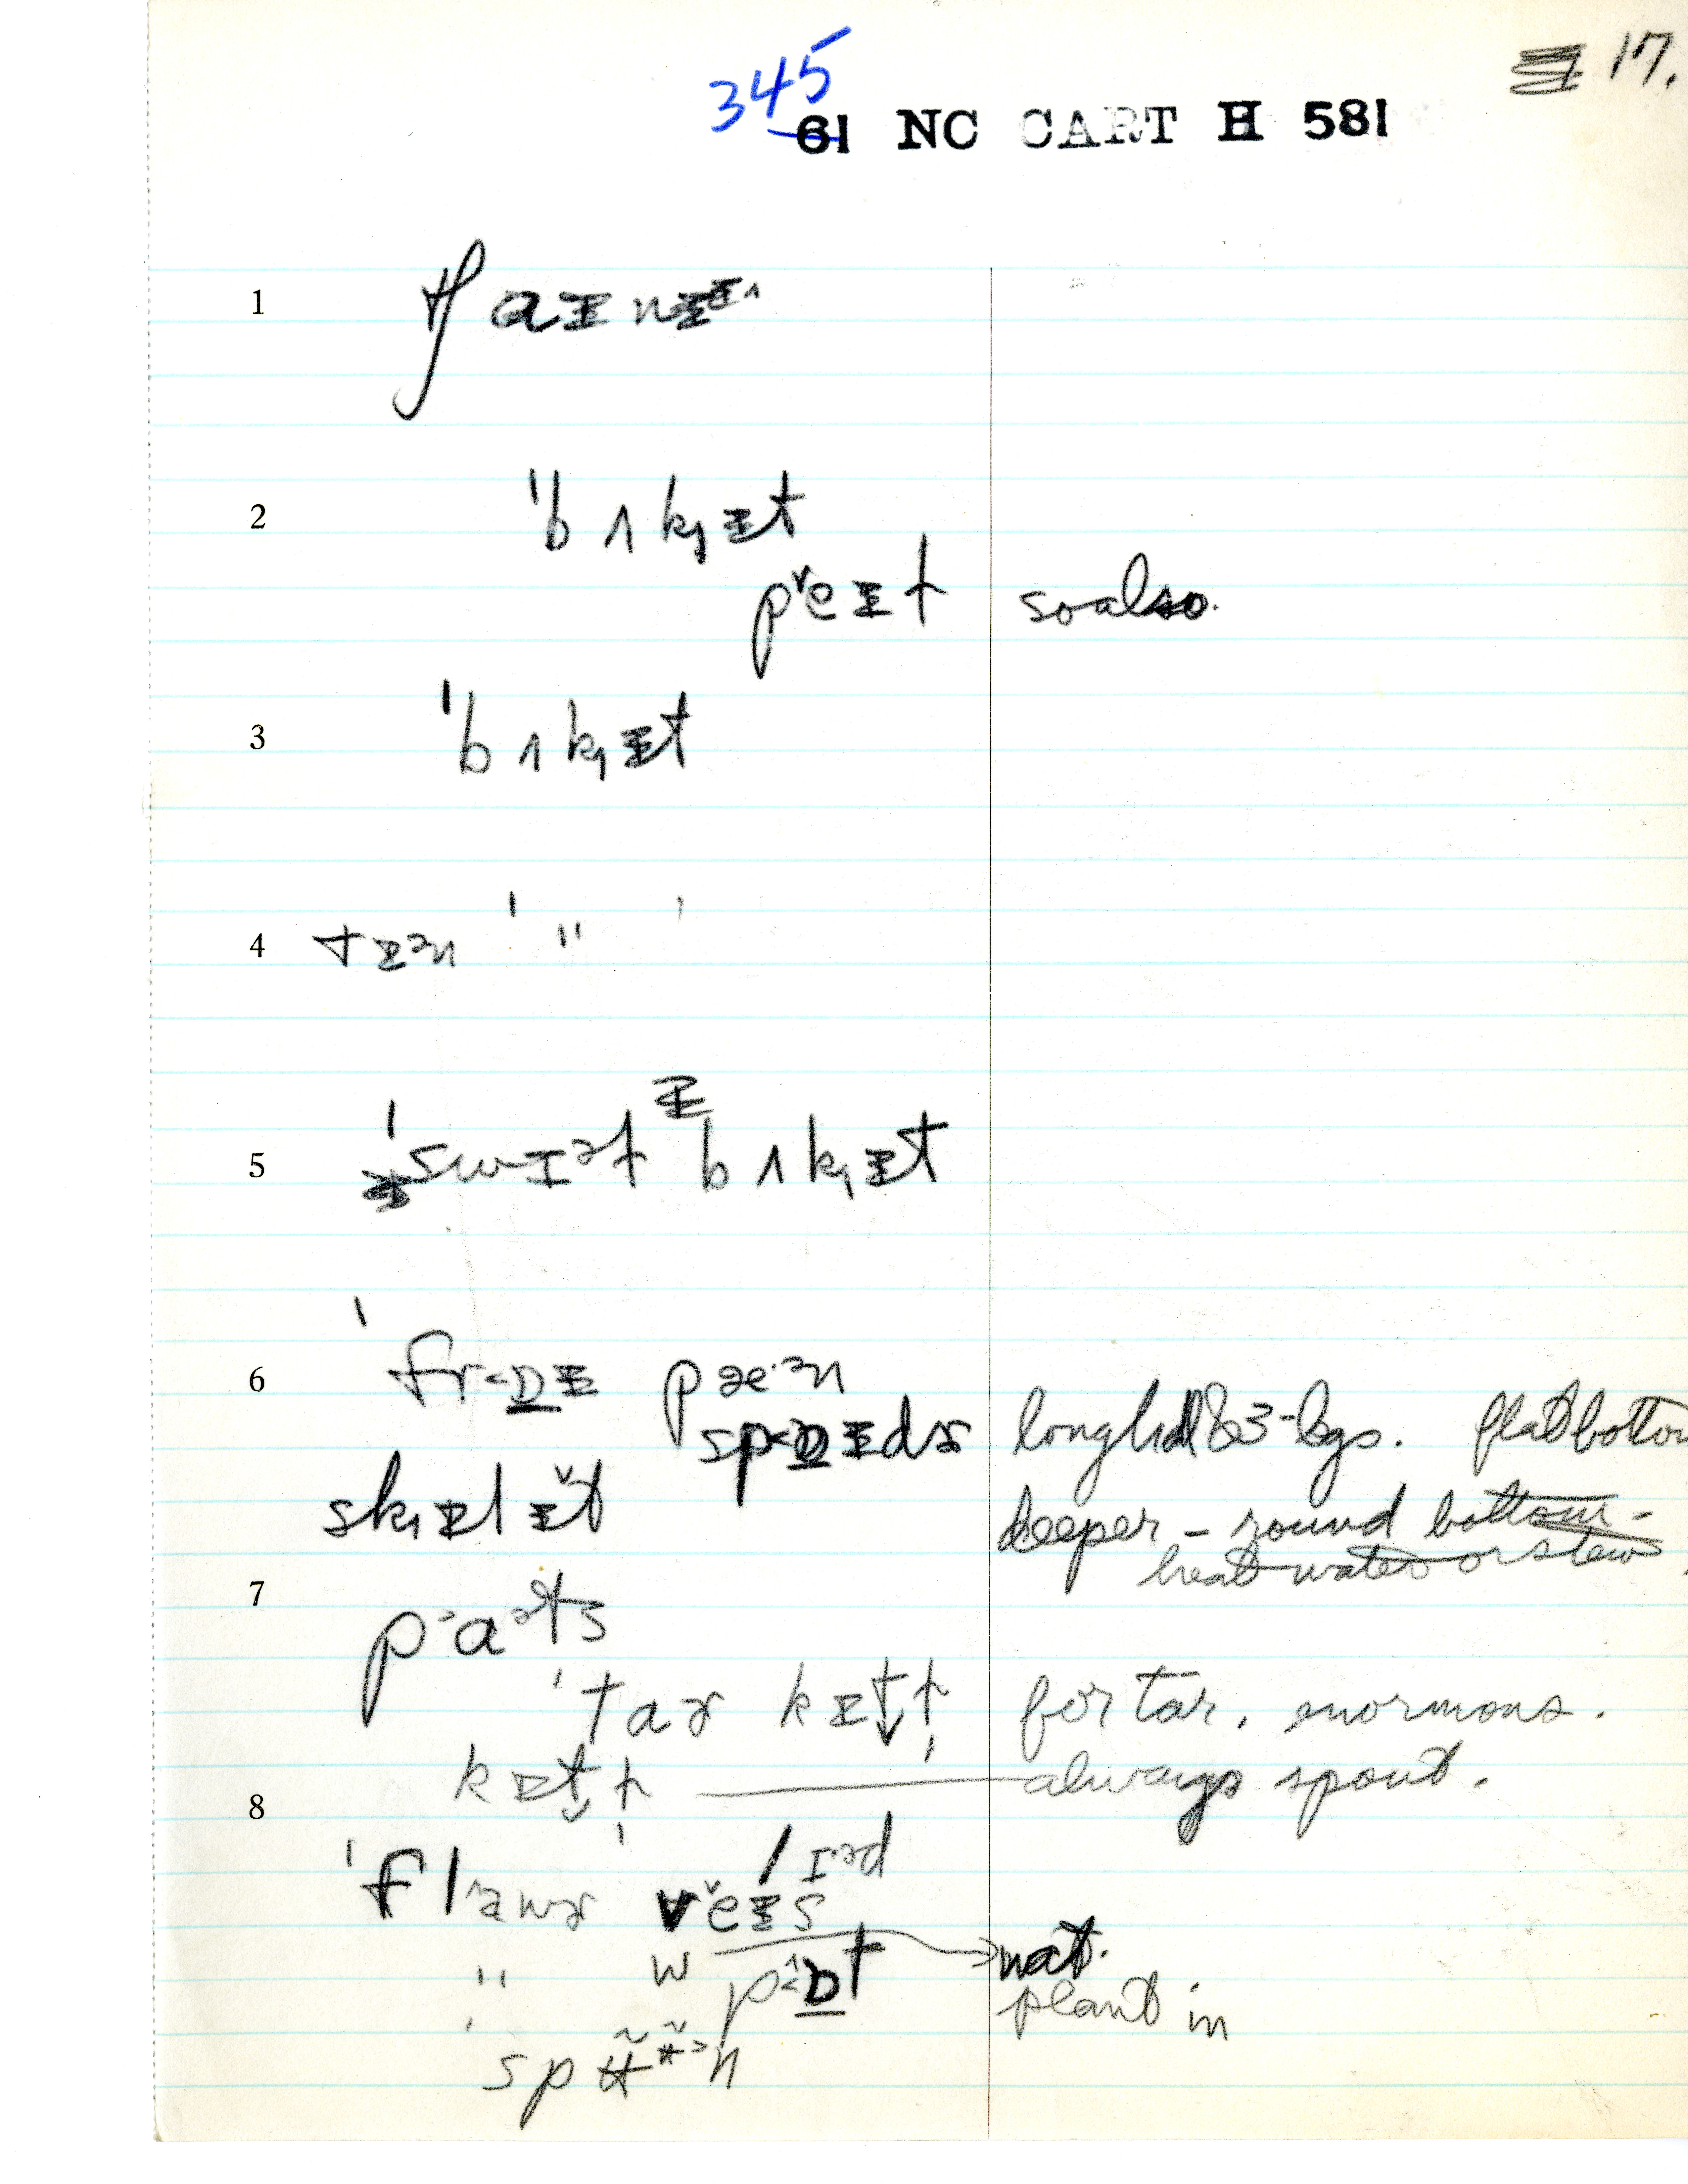 345 17.
61 NC CART H 581
1
2 ˈbʌkɪt
peɪt so also.
3 ˈbʌkɪt
4 tɪən ˈ " ˈ
5 ˈswɪət bʌkɪt
6 ˈfrɒɪ pæˑən
spɒɪdɚ long hdl & 3-legs. flat bottom
skɪlɪt deeper – round bottom –
heat water or stew
7 paəts
ˈtaɚ kɪtl̩ for tar. enormous.
kɪtl̩ always spout.
8 / ɪəd
ˈflawɚ veɪs
" w nat.
pɒt plant in